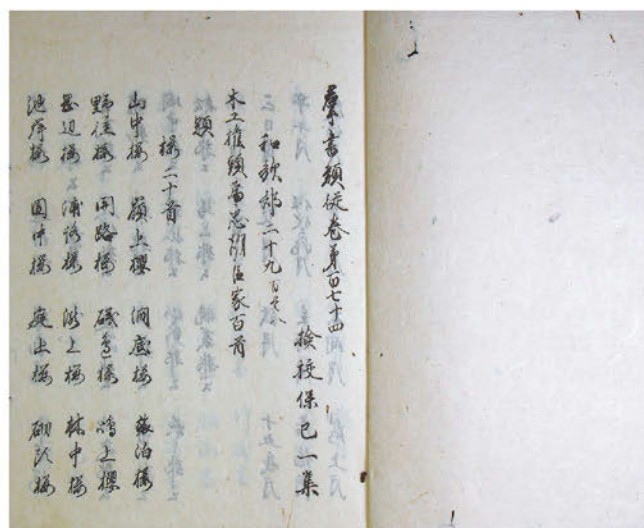 羣書類従巻第百七十四
検校保己一集
和歌部二十九百首八
木工権頭為忠朝臣家百首
題
桜二十首
山中桜　嶺上桜　澗底桜　旅泊桜
野径桜　関路桜　磯邊桜　嶋上桜
谷辺桜　浦路桜　瀧上桜　林中桜
池岸桜　園中桜　庭上桜　砌下桜